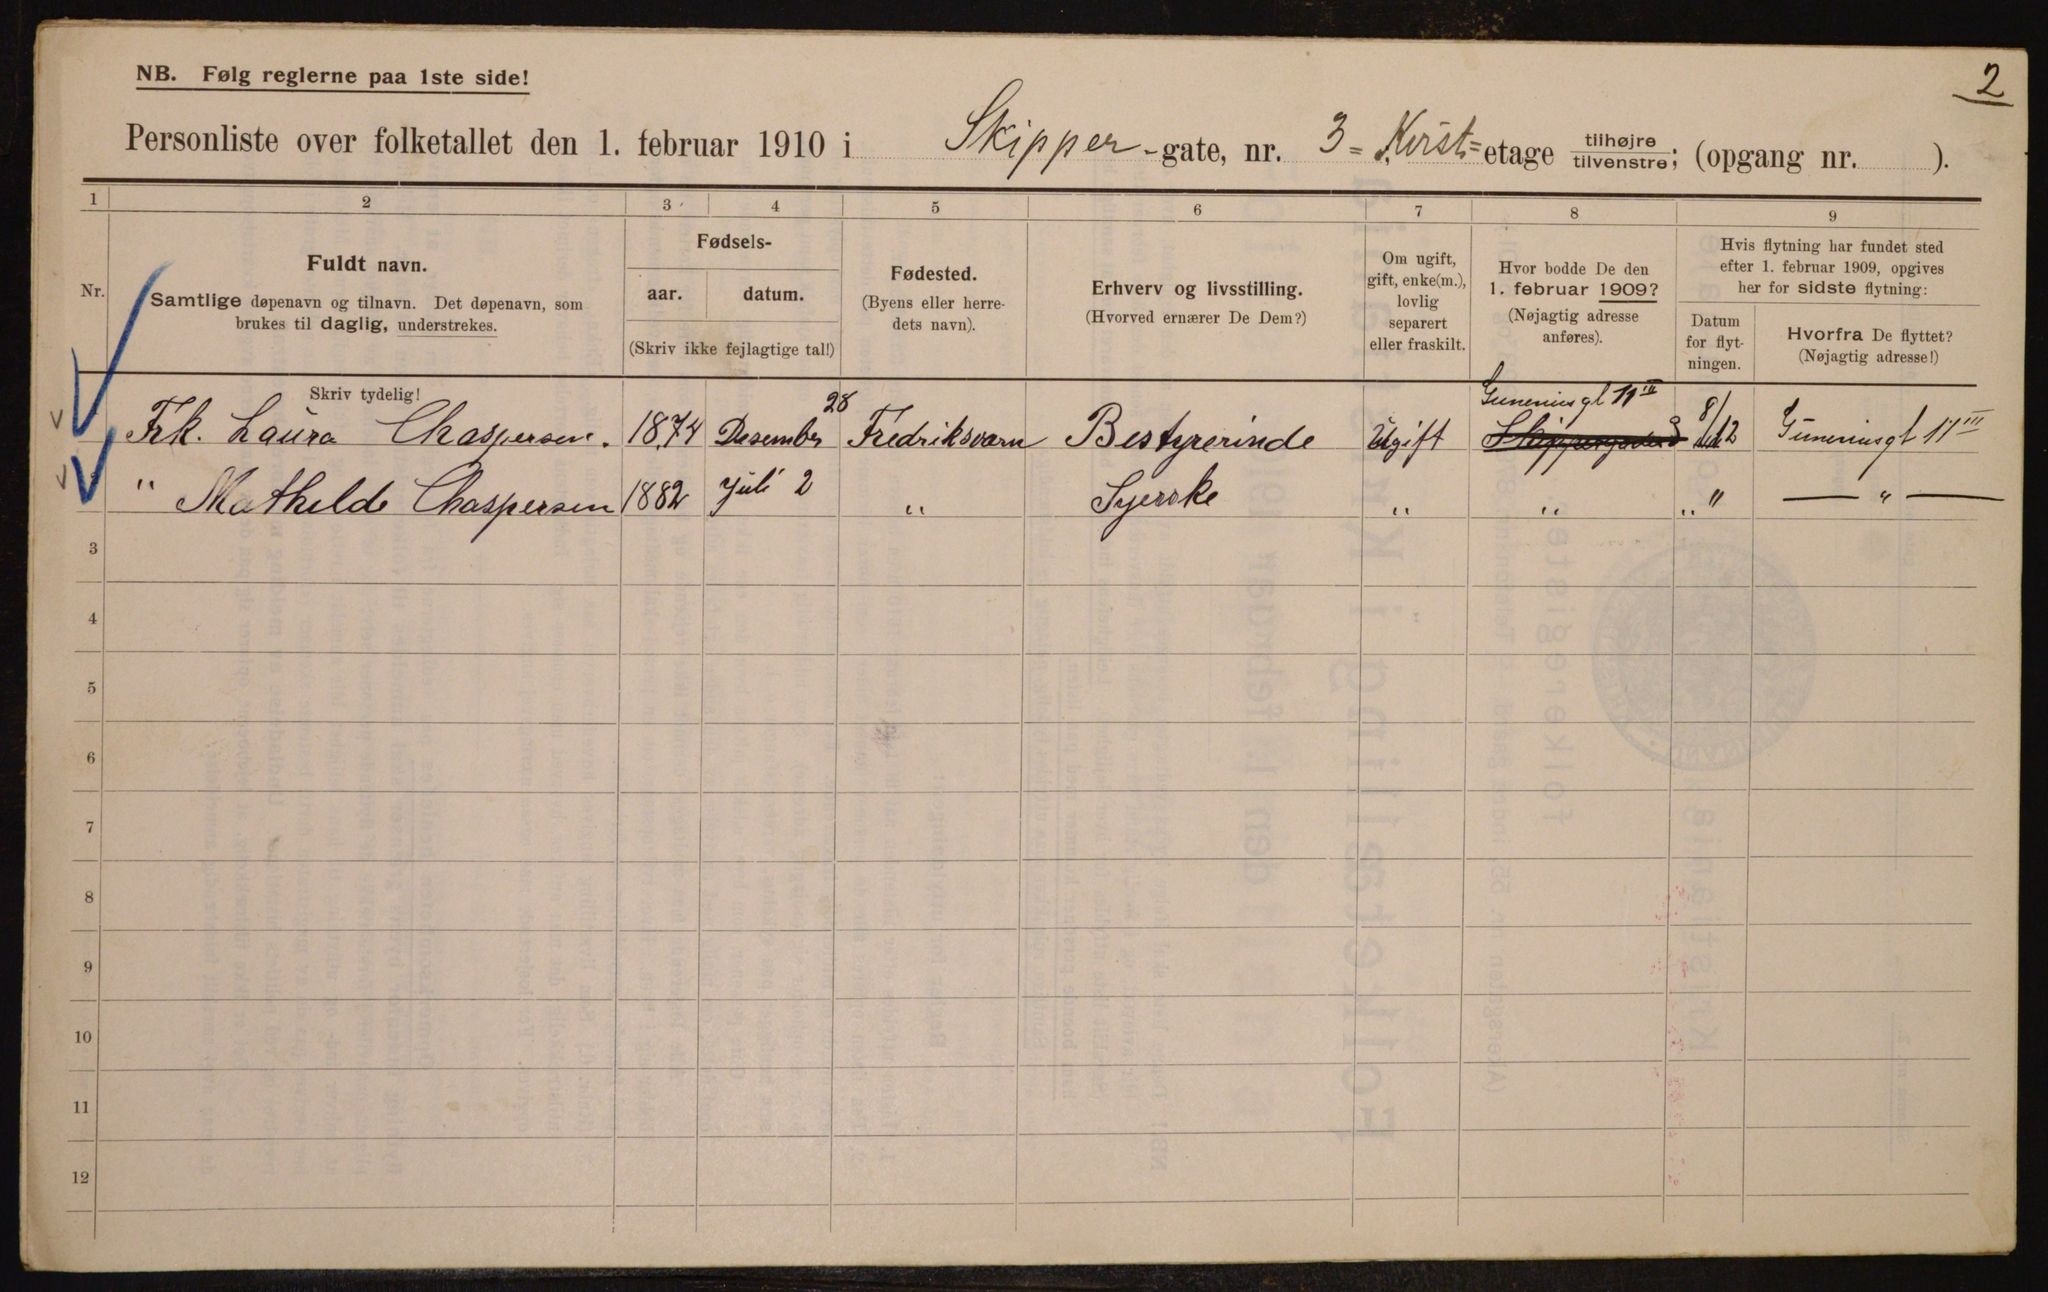 2
NB. Følg reglerne paa 1ste side!
Personliste over folketallet den 1. februar 1910 i Skipper-gate, nr. 3 = Kvist = etage tilhøjre tilvenstre; (opgang nr. ).
1 2 3 4 5 6 7 8 9
Nr.
Fuldt navn.
Samtlige døpenavn og tilnavn. Det døpenavn, som
brukes til daglig, understrekes.
Fødsels-
aar. datum.
(Skriv ikke fejlagtige tal!)
Fødested.
(Byens eller herre-
dets navn).
Erhverv og livsstilling.
(Hvorved ernærer De Dem?)
Om ugift,
gift, enke(m.),
lovlig
separert
eller fraskilt.
Hvor bodde De den
1. februar 1909?
(Nøjagtig adresse
anføres).
Hvis flytning har fundet sted
efter 1. februar 1909, opgives
her for sidste flytning:
Datum
for flyt-
ningen.
Hvorfra De flyttet?
(Nøjagtig adresse!)
Skriv tydelig!
Frk. Laura Chaspersen. 1874 Desember 28 Fredriksværn Bestyrerinde Ugift Guneriusgt 11 III 8/12 Guneriusgt 11 III
" Mathilde Chaspersen 1882 Juli 2 " Syerske " " " " — " —
3
4
5
6
7
8
9
10
11
12